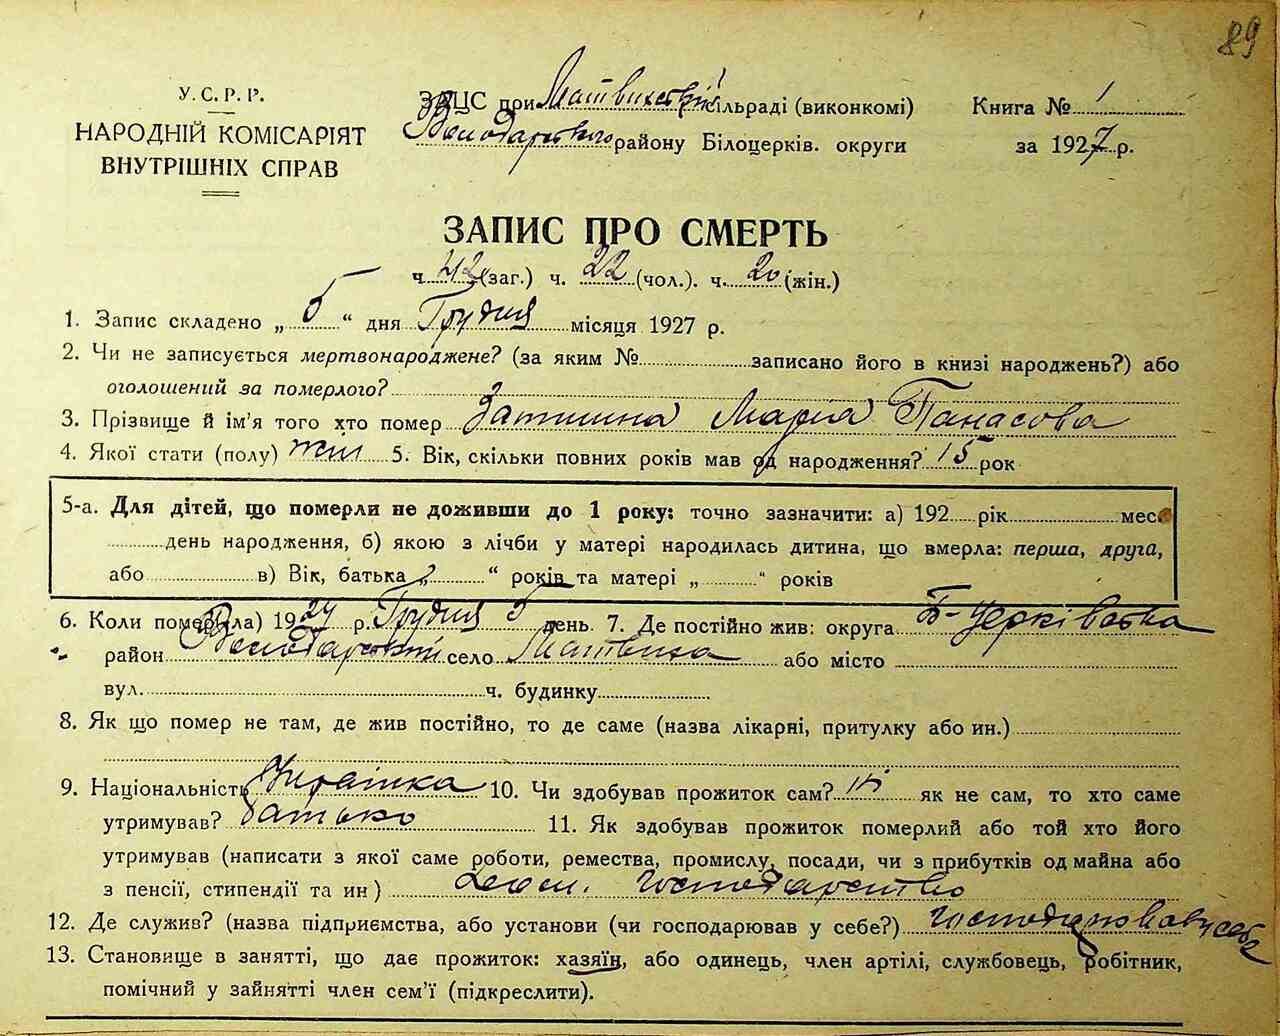 89
У.С.Р.Р.
НАРОДНІЙ КОМІСАРІЯТ
ВНУТРІШНІХ СПРАВ
ЗАЦС при Матвихській сільраді (виконкомі)
Володарського району Білоцерків. округи
Книга № 1
за 1927 р.
ЗАПИС ПРО СМЕРТЬ
ч. 42 (заг.) ч. 22 (чол.). ч. 20 (жін.)
1. Запис складено „ 5 “ дня Грудня місяця 1927 р.
2. Чи не записується мертвонароджене? (за яким № записано його в книзі народжень?) або
оголошений за померлого?
3. Прізвище й ім'я того хто помер Затишна Марія Панасова
4. Якої стати (полу) жін 5. Вік, скільки повних років мав од народження? 15 рок
5-а. Для дітей, що померли не доживши до 1 року: точно зазначити: а) 192 рік мес.
день народження, б) якою з лічби у матері народилась дитина, що вмерла: перша, друга,
або в) Вік, батька „ “ років та матері „ “ років
6. Коли помер(ла) 1927 р. Грудня 5 день. 7. Де постійно жив: округа Б-Церківська
район Володарський село Матвиха або місто
вул. ч. будинку
8. Як що помер не там, де жив постійно, то де саме (назва лікарні, притулку або ин.)
9. Національність Українка 10. Чи здобував прожиток сам? ні як не сам, то хто саме
утримував? батько 11. Як здобував прожиток померлий або той хто його
утримував (написати з якої саме роботи, ремества, промислу, посади, чи з прибутків од майна або
з пенсії, стипендії та ин) господарство
12. Де служив? (назва підприємства, або установи (чи господарював у себе?) господарював у себе
13. Становище в занятті, що дає прожиток: хазяїн, або одинець, член артілі, службовець, робітник,
помічний у зайнятті член сем'ї (підкреслити).